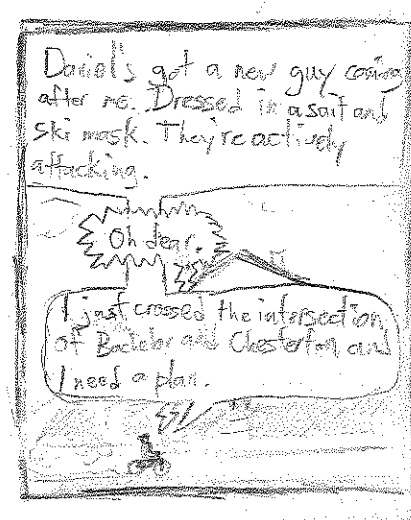 Daniel's got a new guy coming
after me. Dressed in a suit and
ski mask. They're actively
attacking.
Oh dear.
I just crossed the intersection
of Bachelor and Chesterton and
I need a plan.